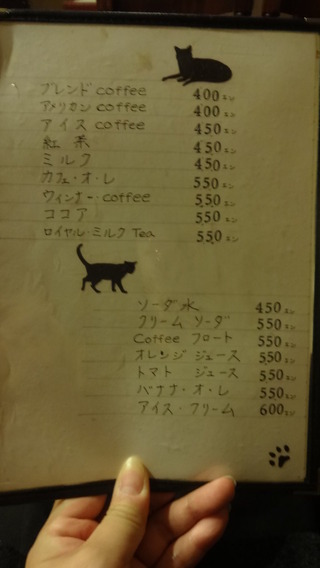 ブレンド coffee 400エン
アメリカン coffee 400エン
アイス coffee 450エン
紅茶 450エン
ミルク 450エン
カフェ・オ・レ 550エン
ウィンナー・coffee 550エン
ココア 550エン
ロイヤル・ミルク Tea 550エン
ソーダ水 450エン
クリーム ソーダ 550エン
Coffee フロート 550エン
オレンジ ジュース 550エン
トマト ジュース 550エン
バナナ・オ・レ 550エン
アイス・クリーム 600エン